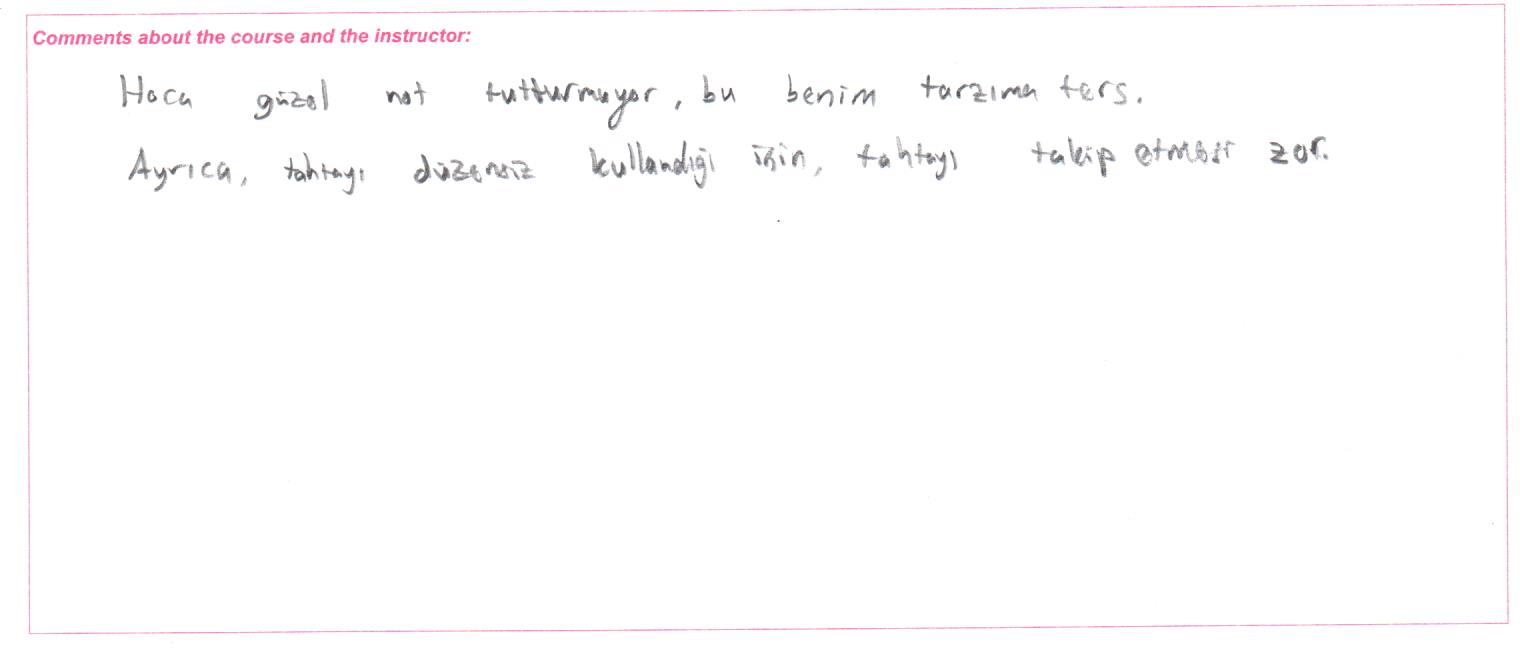 Comments about the course and the instructor:
Hoca güzel not tutturmuyor, bu benim tarzıma ters.
Ayrıca, tahtayı düzensiz kullandığı için, tahtayı takip etmesi zor.